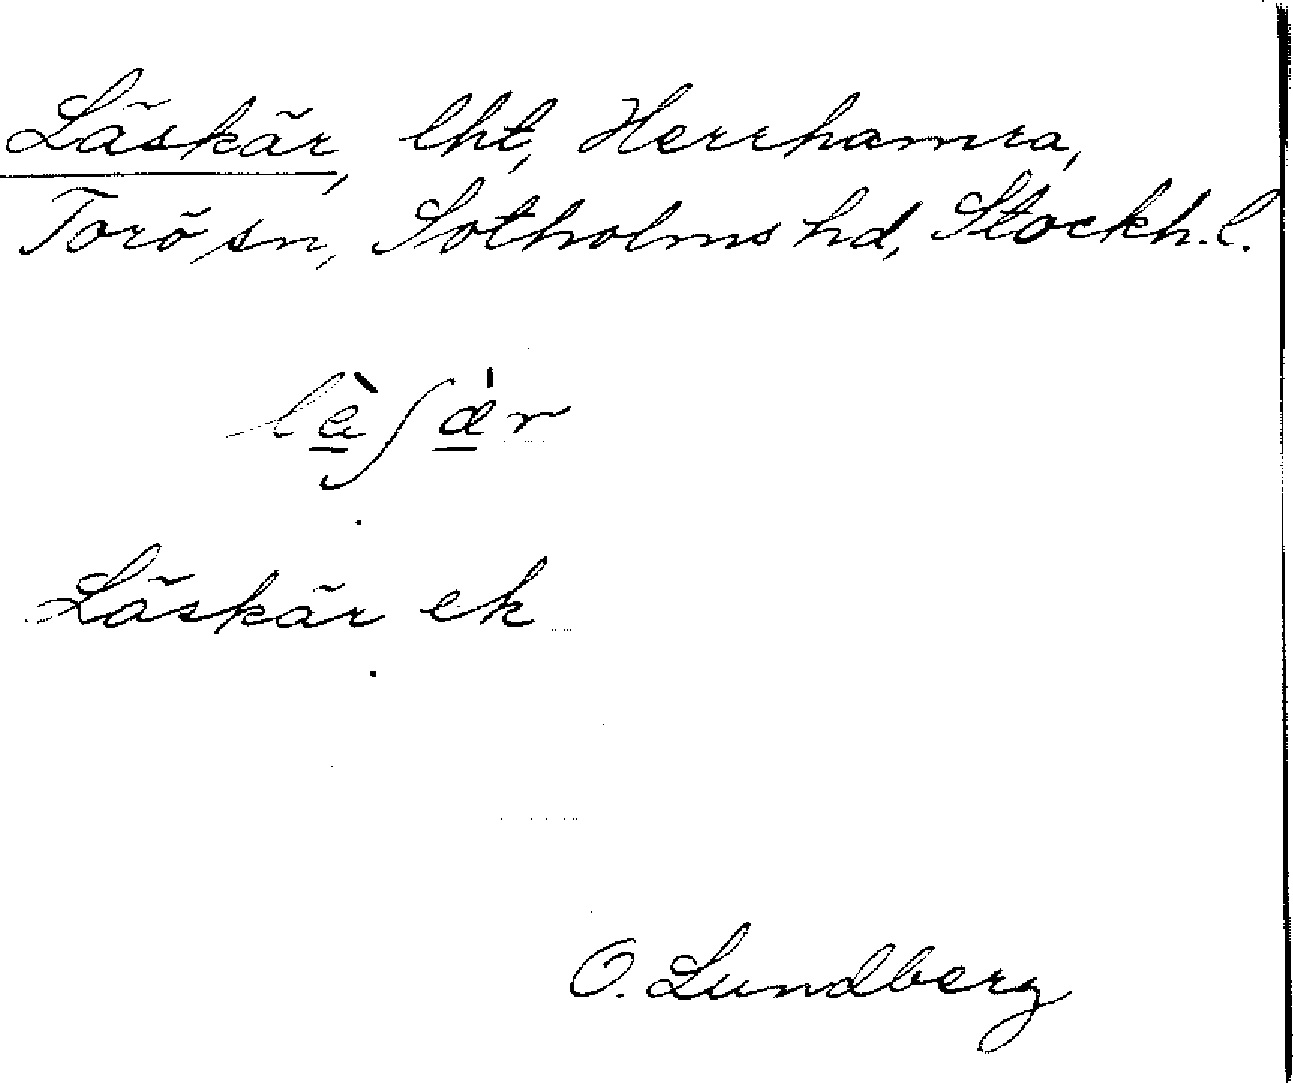 Läskär, lht, Herrhamra,
Torö sn, Sotholms hd, Stockh. l.
Läskär ek
O. Lundberg